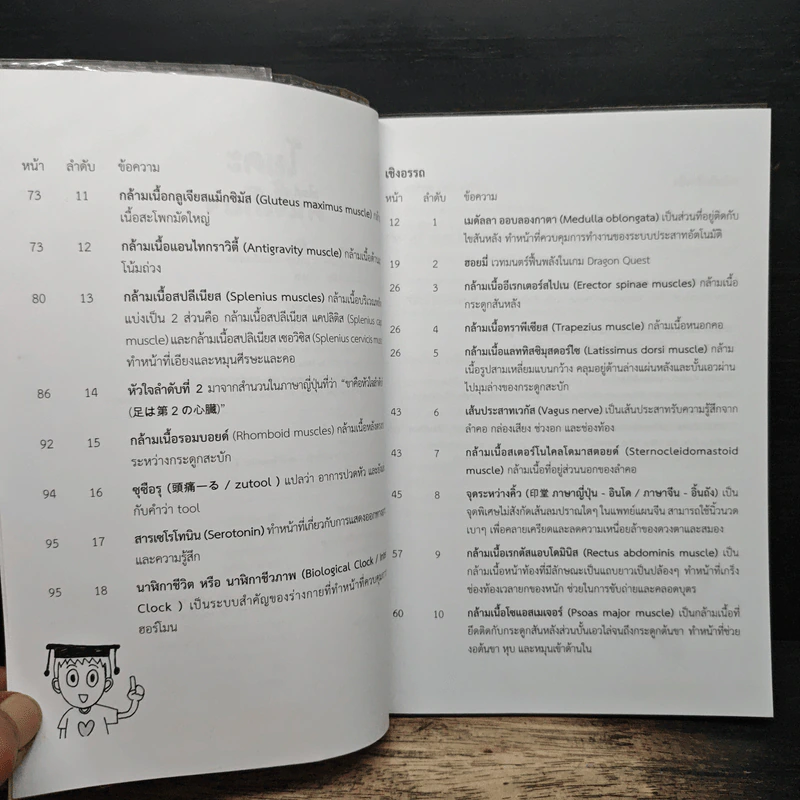 หน้า ลำดับ ข้อความ
73 11 กล้ามเนื้อกลูเจียสแม็กซิมัส (Gluteus maximus muscle)
เนื้อสะโพกมัดใหญ่
73 12 กล้ามเนื้อแอนไทกราวิตี้ (Antigravity muscle) กล้ามเนื้อต้าน
โน้มถ่วง
80 13 กล้ามเนื้อสปลีเนียส (Splenius muscles) กล้ามเนื้อบริเวณ
แบ่งเป็น 2 ส่วนคือ กล้ามเนื้อสปลีเนียส แคปลิติส (Splenius
muscle) และกล้ามเนื้อสปลีเนียส เซอวิซิส (Splenius cervicis
ทำหน้าที่เอียงและหมุนศีรษะและคอ
86 14 หัวใจลำดับที่ 2 มาจากสำนวนในภาษาญี่ปุ่นที่ว่า "ขาคือหัวใจ
(足は第2の心臓)"
92 15 กล้ามเนื้อรอมบอยด์ (Rhomboid muscles) กล้ามเนื้อ
ระหว่างกระดูกสะบัก
94 16 ซุซือรุ (頭痛ーる / zutool ) แปลว่า อาการปวดหัว
กับคำว่า tool
95 17 สารเซโรโทนิน (Serotonin) ทำหน้าที่เกี่ยวกับการแสดงออก
และความรู้สึก
95 18 นาฬิกาชีวิต หรือ นาฬิกาชีวภาพ (Biological Clock /
Clock ) เป็นระบบสำคัญของร่างกายที่ทำหน้าที่ควบคุม
ฮอร์โมน
เชิงอรรถ
หน้า ลำดับ ข้อความ
12 1 เมดัลลา ออบลองกาตา (Medulla oblongata) เป็นส่วนที่อยู่ติดกับ
ไขสันหลัง ทำหน้าที่ควบคุมการทำงานของระบบประสาทอัตโนมัติ
19 2 ฮอยมี่ เวทมนตร์ฟื้นพลังในเกม Dragon Quest
26 3 กล้ามเนื้ออีเรกเตอร์สไปเน (Erector spinae muscles) กล้ามเนื้อ
กระดูกสันหลัง
26 4 กล้ามเนื้อทราพีเซียส (Trapezius muscle) กล้ามเนื้อหนอกคอ
26 5 กล้ามเนื้อแลททิสซิมุสดอร์ไซ (Latissimus dorsi muscle) กล้าม
เนื้อรูปสามเหลี่ยมแบนกว้าง คลุมอยู่ด้านล่างแผ่นหลังและบั้นเอวผ่าน
ไปมุมล่างของกระดูกสะบัก
43 6 เส้นประสาทเวกัส (Vagus nerve) เป็นเส้นประสาทรับความรู้สึกจาก
ลำคอ กล่องเสียง ช่วงอก และช่องท้อง
43 7 กล้ามเนื้อสเตอร์โนไคลโดมาสตอยด์ (Sternocleidomastoid
muscle) กล้ามเนื้อที่อยู่ส่วนนอกของลำคอ
45 8 จุดระหว่างคิ้ว (印堂 ภาษาญี่ปุ่น - อินโด / ภาษาจีน - อิ้นถัง) เป็น
จุดพิเศษไม่สังกัดเส้นลมปราณใดๆ ในแพทย์แผนจีน สามารถใช้นิ้วนวด
เบาๆ เพื่อคลายเครียดและลดความเหนื่อยล้าของดวงตาและสมอง
57 9 กล้ามเนื้อเรกตัสแอบโดมินิส (Rectus abdominis muscle) เป็น
กล้ามเนื้อหน้าท้องที่มีลักษณะเป็นแถบยาวเป็นปล้องๆ ทำหน้าที่เกร็ง
ช่องท้องเวลายกของหนัก ช่วยในการขับถ่ายและคลอดบุตร
60 10 กล้ามเนื้อโซแอสเมเจอร์ (Psoas major muscle) เป็นกล้ามเนื้อที่
ยึดติดกับกระดูกสันหลังส่วนบั้นเอวไล่จนถึงกระดูกต้นขา ทำหน้าที่ช่วย
งอต้นขา หุบ และหมุนเข้าด้านใน